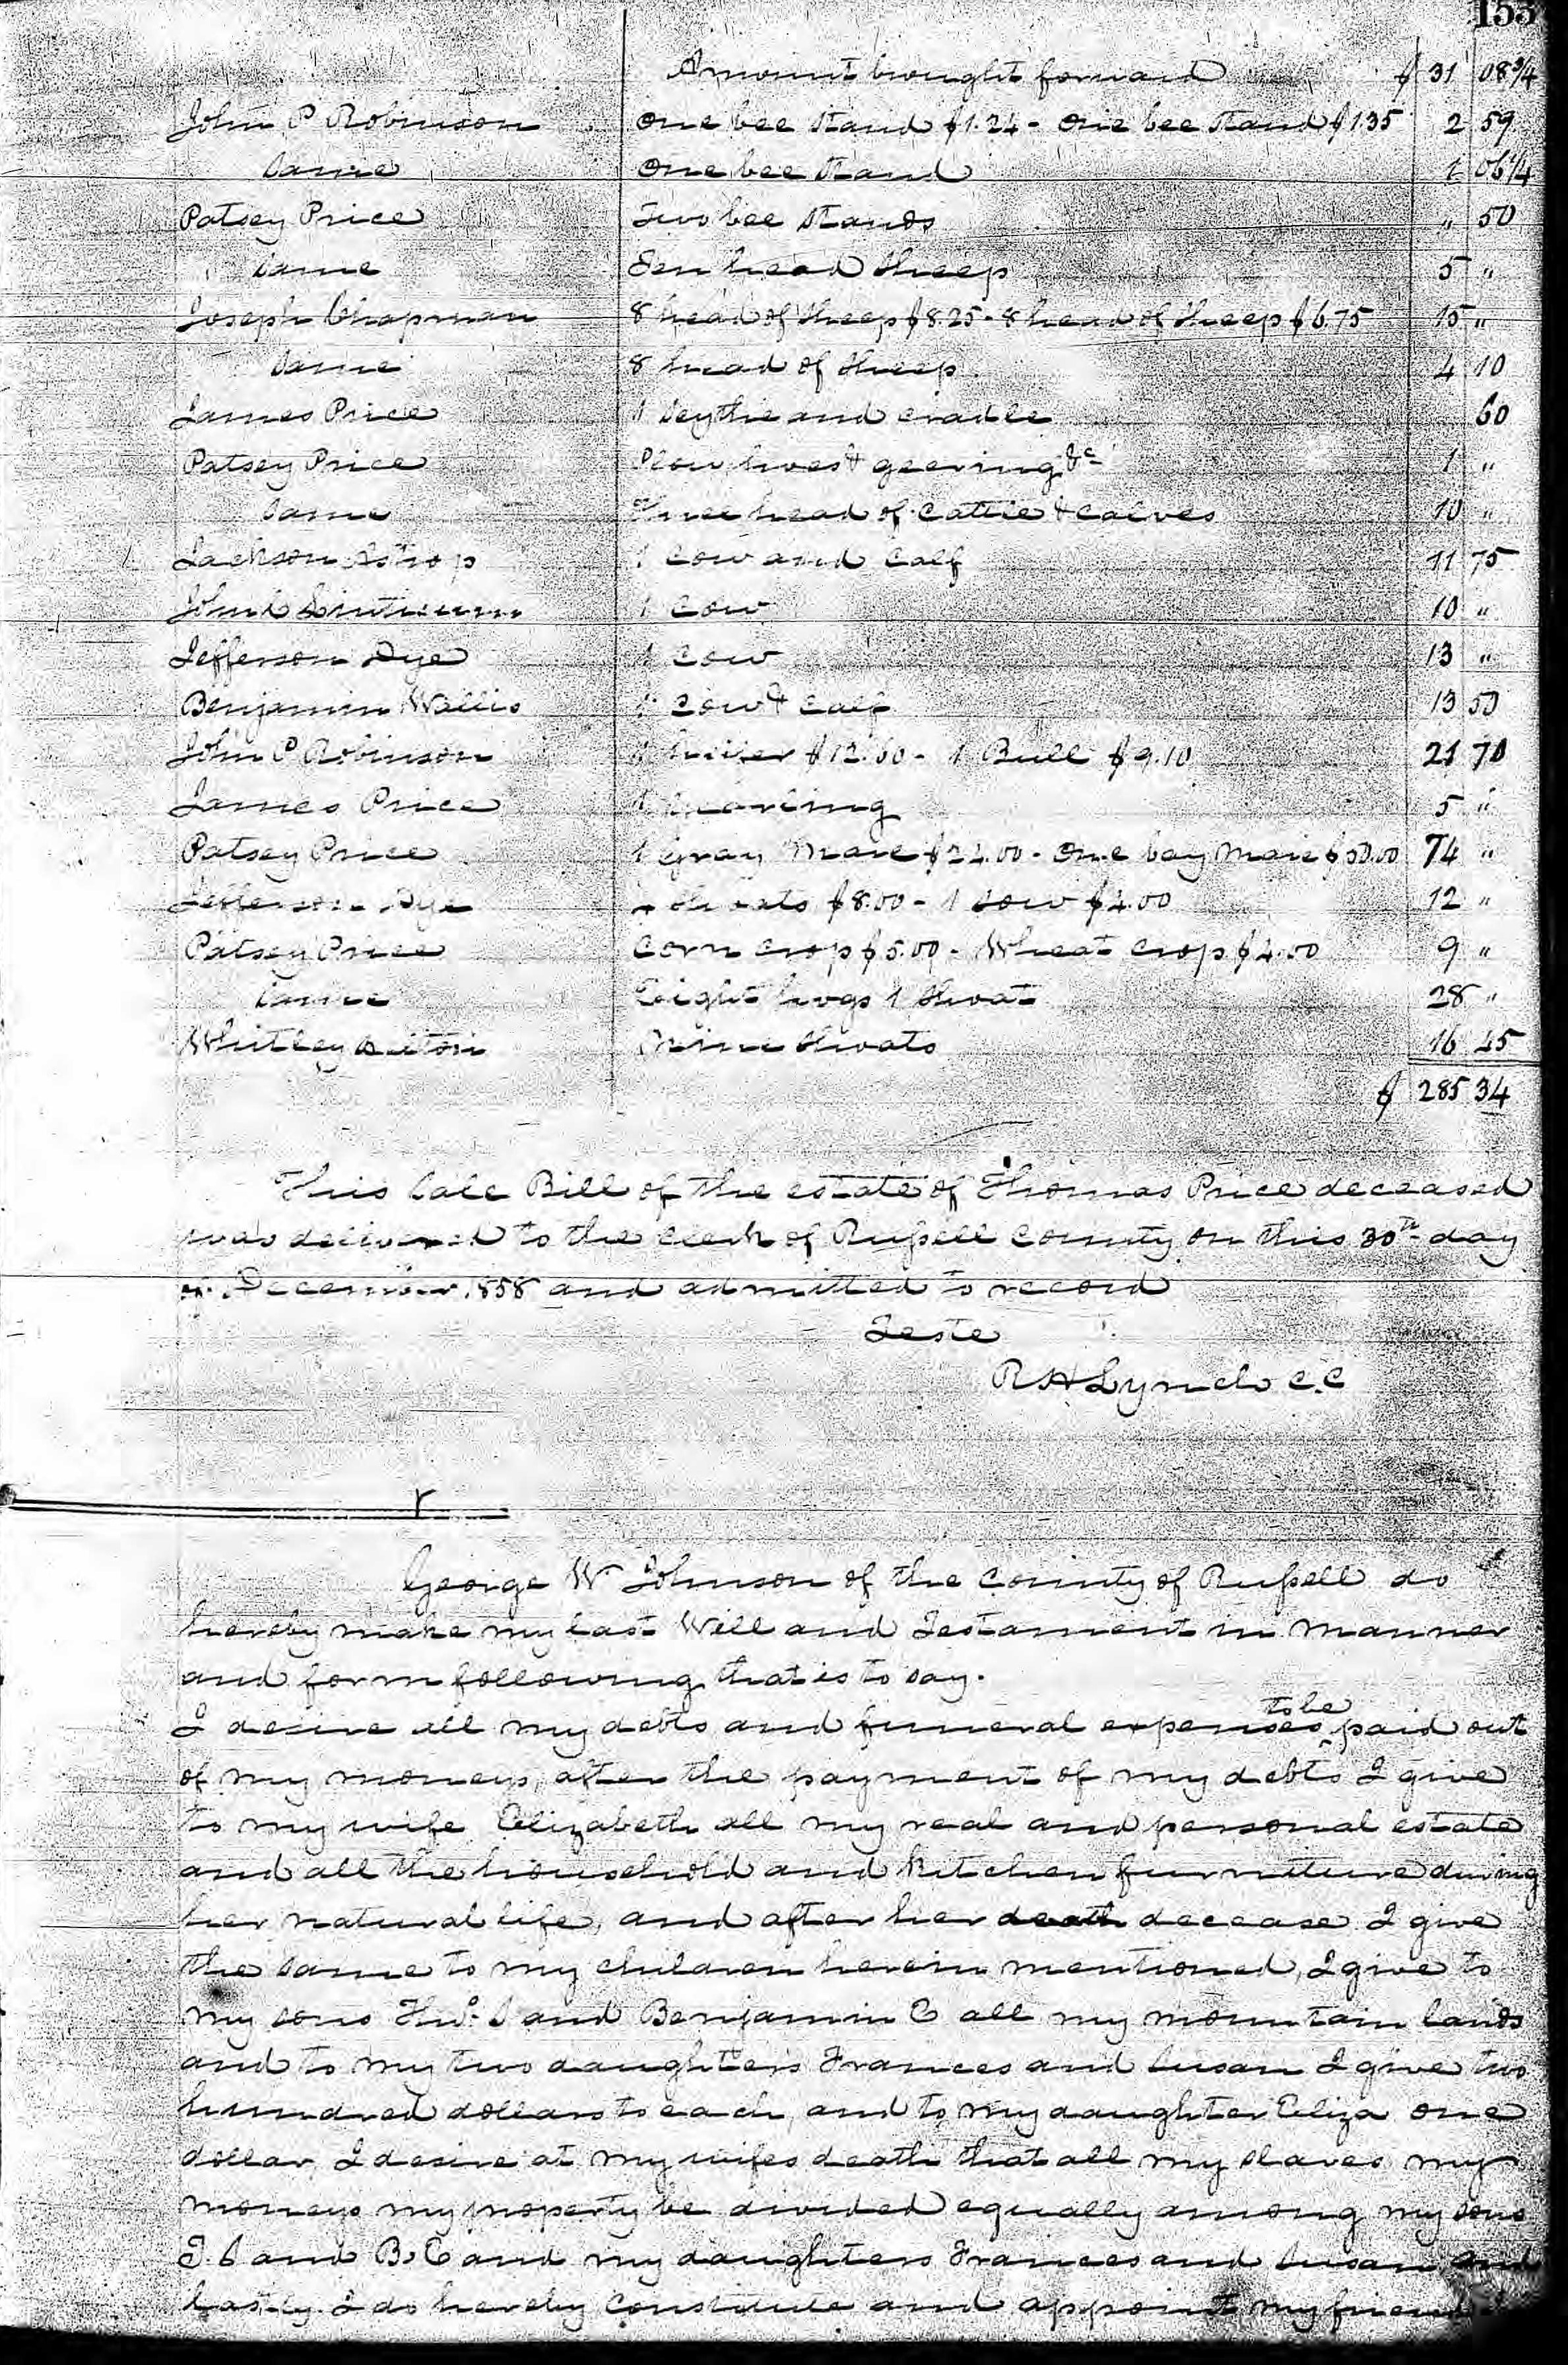 155
Amount brought forward $ 31 08 3/4
John P Robinson One bee stand $1.24 - One bee stand $1.35 2 59
Same One bee stand 1 06 1/4
Patsey Price Two bee stands " 50
Same Ten head sheep 5 "
Joseph Chapman 8 head of sheep $8.25 - 8 head of sheep $6.75 15 "
Same 8 head of sheep 4 10
James Price 1 scythe and cradle 60
Patsey Price Plow hoes & geering &c 1 "
Same Three head of cattle & calves 10 "
Jackson 1 cow and calf 11 75
John 1 cow 10 "
Jefferson Dye 1 cow 13 "
Benjamin Wallis 1 cow & calf 13 50
John P Robinson 1 heifer $12.60 - 1 Bull $9.10 21 70
James Price 1 yearling 5 "
Patsey Price 1 gray mare $24.00 - One bay mare $50.00 74 "
Jefferson Dye shoats $8.00 - 1 sow $4.00 12 "
Patsey Price Corn crop $5.00 - Wheat crop $4.00 9 "
Same Eight hogs 1 shoat 28 "
Whitley Nine shoats 16 45
$ 285 34
This Sale Bill of the estate of Thomas Price deceased
was delivered to the clerk of Russell County on this 30th day
of December 1858 and admitted to record
Teste
R H Lynch C.C
George W Johnson of the County of Russell do
hereby make my last Will and Testament in manner
and form following that is to say.
I desire all my debts and funeral expenses to be paid out
of my moneys, after the payment of my debts I give
to my wife Elizabeth all my real and personal estate
and all the household and Kitchen furniture during
her natural life, and after her death decease I give
the same to my children herein mentioned, I give to
my sons Thos. S and Benjamin C all my mountain lands
and to my two daughters Frances and Susan I give two
hundred dollars to each, and to my daughter Eliza one
dollar, I desire at my wifes death that all my slaves my
moneys my property be divided equally among my sons
T. S and B. C and my daughters Frances and Susan and
lastly I do hereby constitute and appoint my friend